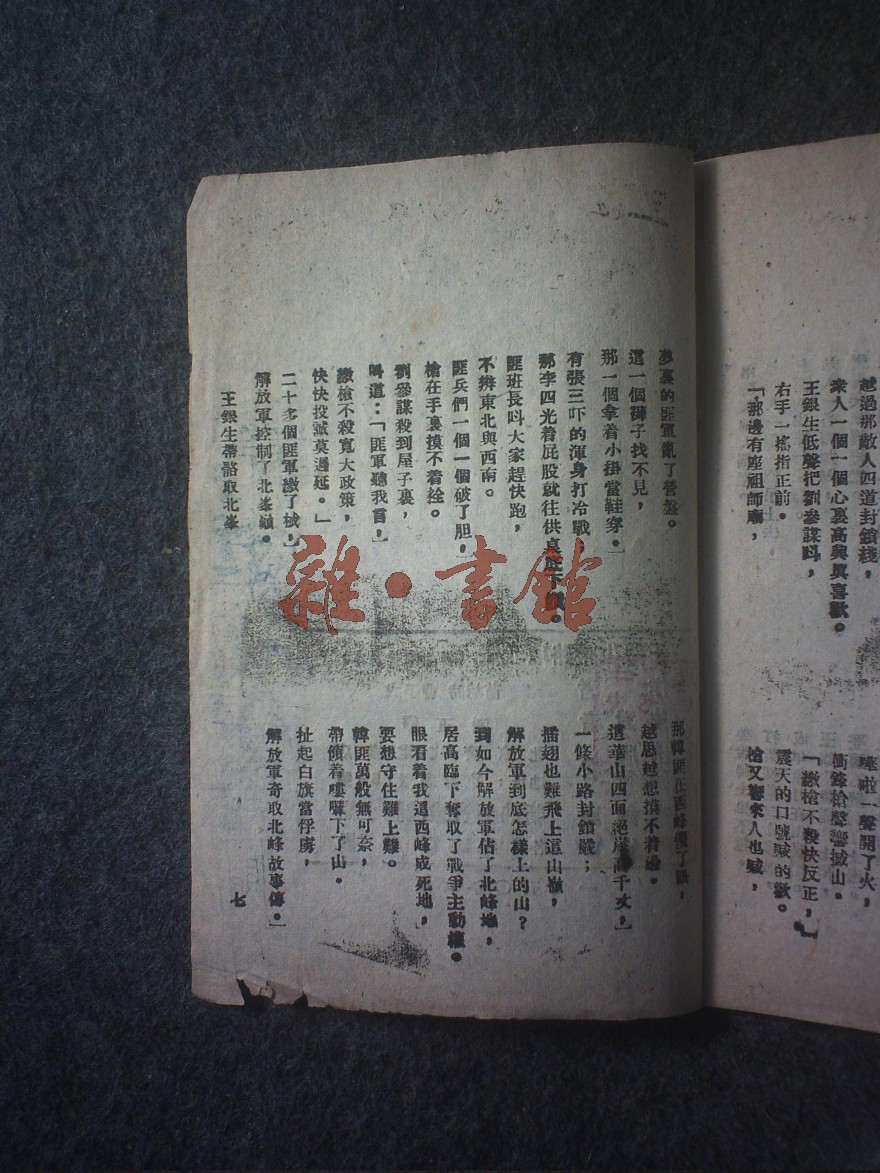 越過那敵人四道封鎖綫，
衆人一個一個心裏高興眞喜歡。
王銀生低聲把劉參謀叫，
右手一搖指正前。
「那邊有座祖師廟，
嘩啦一聲開了火，
衝鋒槍聲響撼山。
「繳槍不殺快反正，」
震天的口號喊的歡。
槍又響來人也喊，
夢裏的匪軍亂了營盤。
這一個褲子找不見，
那一個拿着小掛當鞋穿。
有張三吓的渾身打冷戰，
那李四光着屁股就往供桌底下
匪班長呌大家趕快跑，
不辨東北與西南。
匪兵們一個一個破了胆，
槍在手裏摸不着拴。
劉參謀殺到屋子裏，
呌道：「匪軍聽我言，
繳槍不殺寬大政策，
快快投誠莫遲延。」
二十多個匪軍繳了械，
解放軍控制了北峯巔。
那韓匪在西峰
越思越想摸不着邊。
這華山四面絕崖高千丈，
一條小路封鎖嚴；
插翅也難飛上這山巔，
解放軍到底怎樣上的山？
到如今解放軍佔了北峰地，
居高臨下奪取了戰爭主動權。
眼看着我這西峰成死地，
要想守住難上難。
韓匪萬般無可奈，
帶領着嘍囉下了山。
扯起白旗當俘虜，
解放軍奇取北峰故事傳。
王銀生帶路取北峯
七
雜·書館